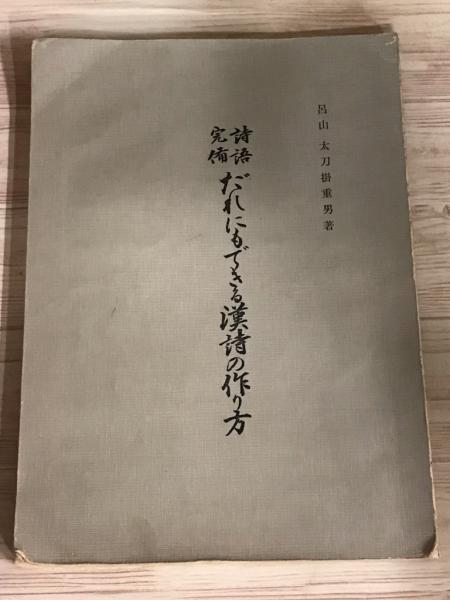 呂山 太刀掛重男著
詩語完備 だれにもできる漢詩の作り方